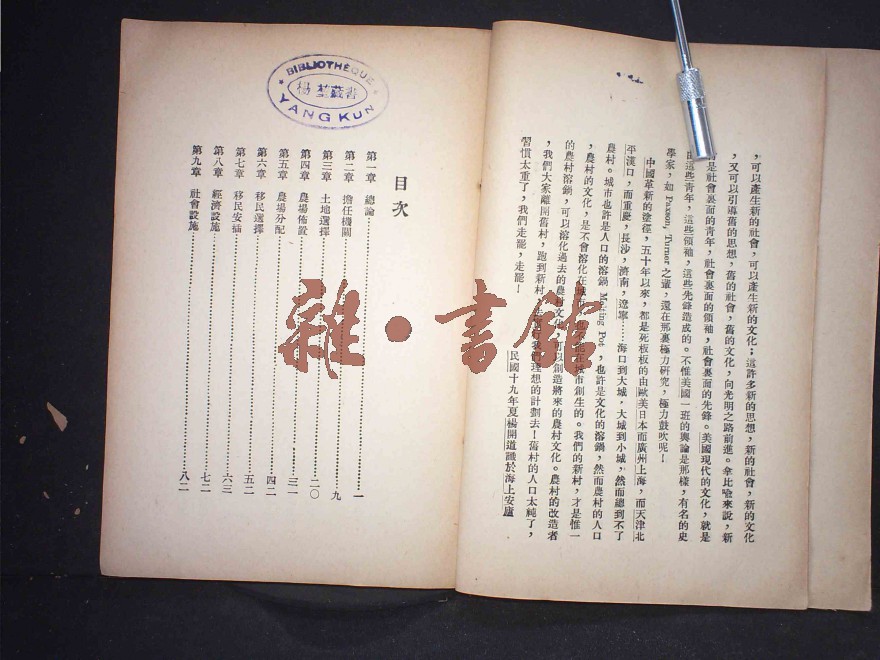 ，可以產生新的社會，可以產生新的文化；這許多新的思想，新的社會，新的文化
，又可以引導舊的思想，舊的社會，舊的文化，向光明之路前進。拿比喩來說，新
是社會裏面的青年，社會裏面的領袖，社會裏面的先鋒。美國現代的文化，就是
這些青年，這些領袖，這些先鋒造成的。不惟美國一班的輿論是那樣，有名的史
學家，如 Paxson, Turner 之輩，還在那裏極力研究，極力鼓吹呢！
中國革新的塗徑，五十年以來，都是死板板的由歐美日本而廣州上海，而天津北
平漢口，而重慶，長沙，濟南，遼寧……海口到大城，大城到小城，然而總到不了
農村。城市也許是人口的溶鍋 Melting Pot，也許是文化的溶鍋，然而農村的人口
，農村的文化，是不會溶化在城市，也不能在城市創生的。我們的新村，才是惟一
的農村溶鍋，可以溶化過去的農村文化，可以創造將來的農村文化。農村的改造者
，我們大家離開舊村，跑到新村，去進行我們理想的計劃去！舊村的人口太純了，
習慣太重了，我們走罷，走罷！
民國十九年夏楊開道識於海上安廬
BIBLIOTHÈQUE
楊堃藏書
YANG KUN
目次
第一章 總論…一
第二章 擔任機關…九
第三章 土地選擇…二〇
第四章 農場佈置…三一
第五章 農場分配…四二
第六章 移民選擇…五二
第七章 移民安插…六三
第八章 經濟設施…七二
第九章 社會設施…八二
雜·書館